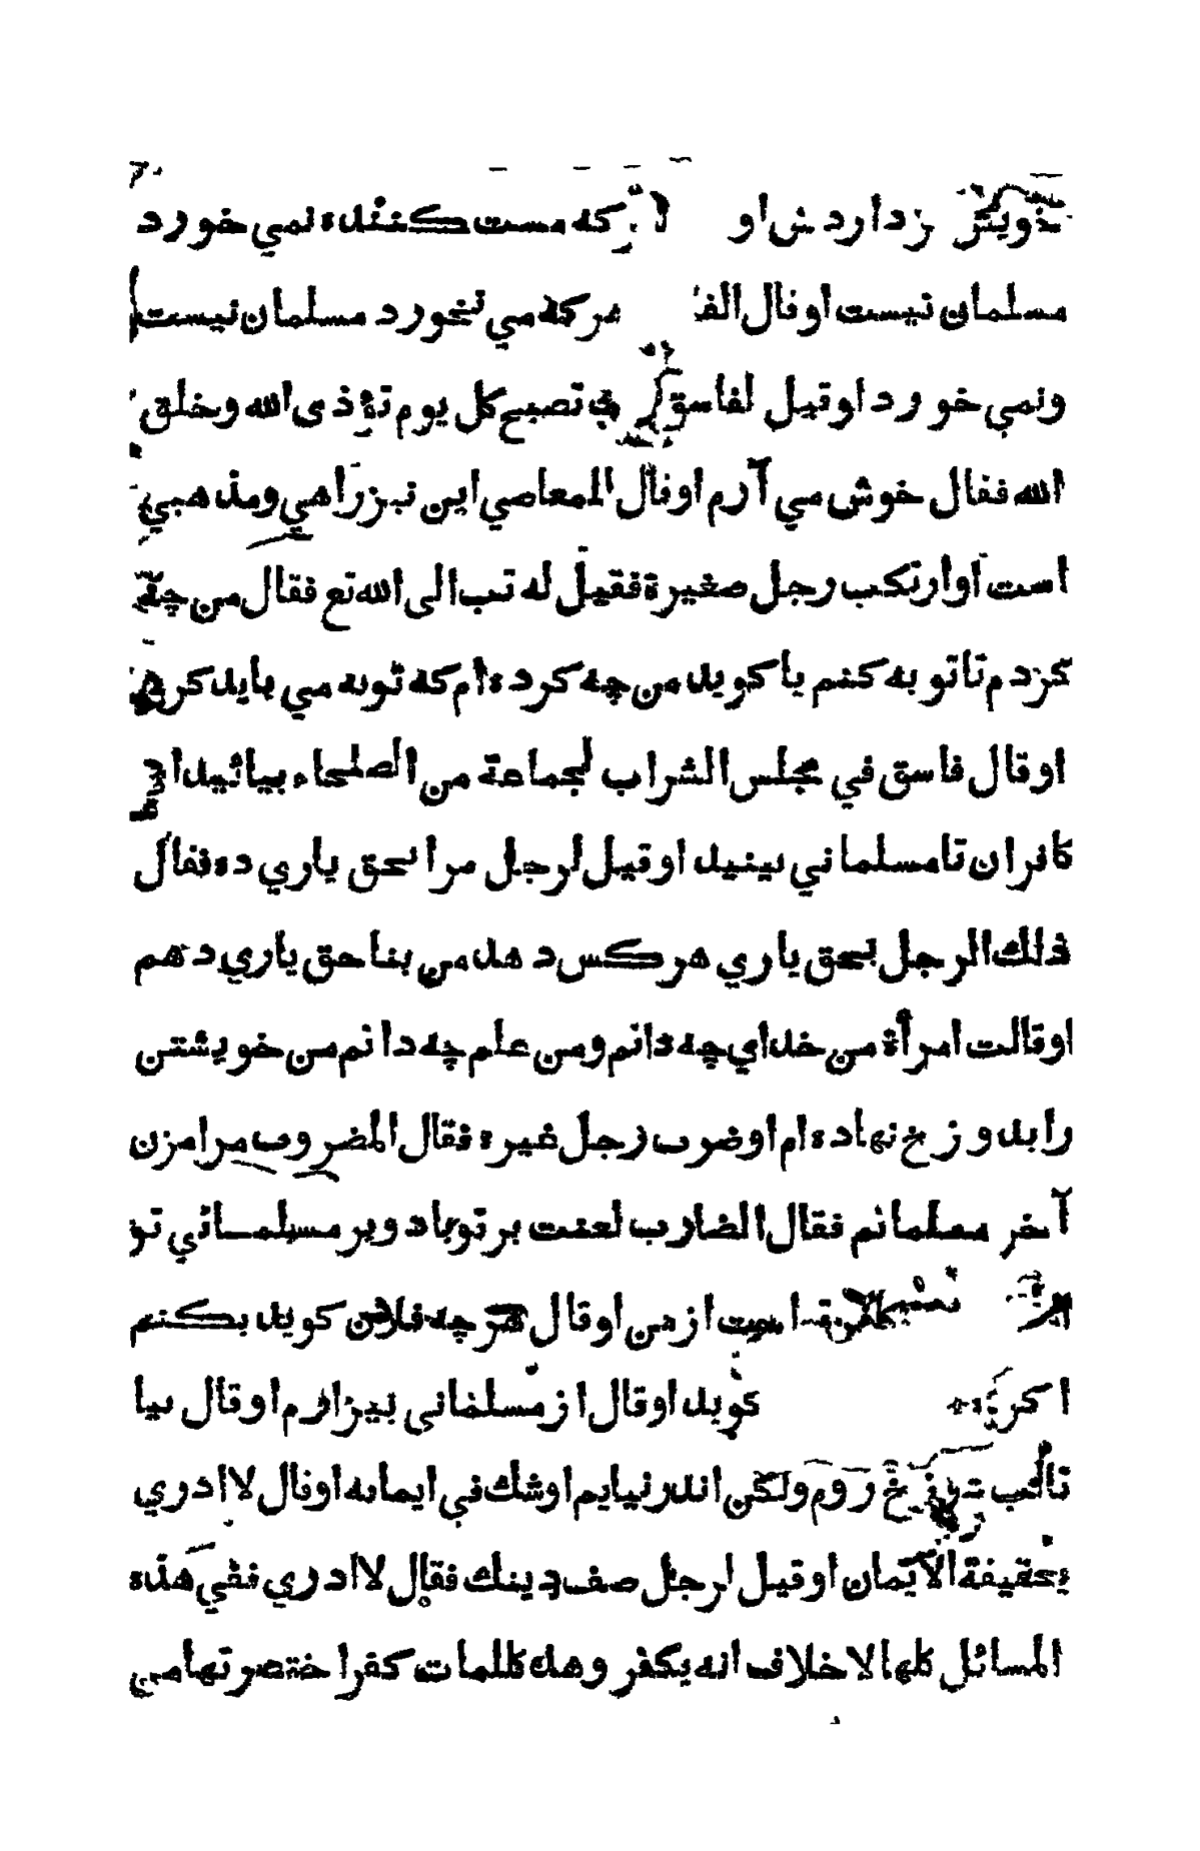 خويش بزدارد ش او که مست کننده نمي خورد
مسلمان نيست او قال الف هر که مي نخورد مسلمان نيست
ونمي خورد او قيل لفاسق تصبح کل يوم تؤذى الله وخلق
الله فقال خوش مي آرم او قال المعاصي اين نيز راهي ومذهبي
است او ارتکب رجل صغيرة فقيل له تب الى الله تع فقال من چه
کردم تا توبه کنم يا کويد من چه کرده ام که توبه مي بايد کرد
او قال فاسق في مجلس الشراب لجماعة من الصلحاء بيائيد اي
کافران تا مسلماني بينيد او قيل لرجل مرا بحق ياري ده فقال
ذلك الرجل بحق ياري هر کس دهد من بناحق ياري دهم
او قالت امرأة من خداي چه دانم ومن علم چه دانم من خويشتن
را بدوزخ نهاده ام او ضرب رجل غيره فقال المضروب مرا مزن
آخر مسلمانم فقال الضارب لعنت بر تو باد وبر مسلماني تو
است از من او قال هر چه فلان کويد بکنم
اکر کويد او قال از مسلماني بيزارم او قال بيا
تا لب دوزخ روم ولکن اندر نيايم او شك في ايمانه او قال لا ادري
بحقيقة الايمان او قيل لرجل صف دينك فقال لا ادري ففي هذه
المسائل کلها لا خلاف انه يکفر وهذه کلمات کفر اختصرتها من